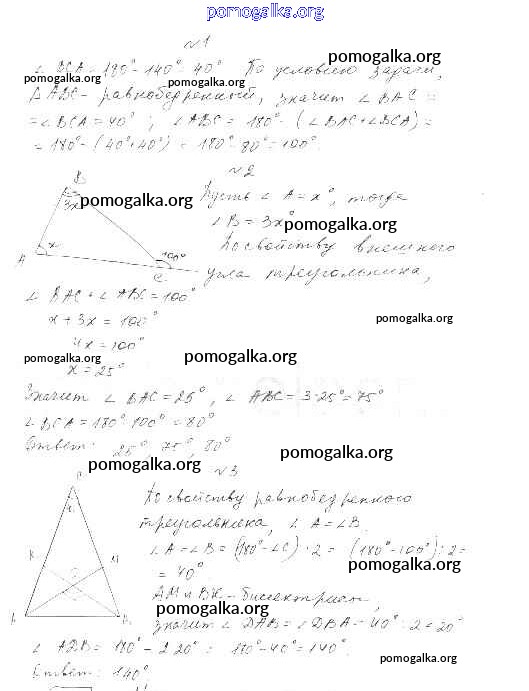 pomogalka.org
№1
∠BCA = 180° - 140° = 40° По условию задачи,
pomogalka.org
pomogalka.org
ΔABC - равнобедренный, значит ∠BAC =
= ∠BCA = 40°; ∠ABC = 180° - (∠BAC + ∠BCA) =
pomogalka.org
pomogalka.org
= 180° - (40° + 40°) = 180° - 80° = 100°.
№2
B
Пусть ∠A = x°, тогда
3x
pomogalka.org
∠B = 3x°
pomogalka.org
A
x
100°
C
По свойству внешнего
угла треугольника,
∠BAC + ∠ABC = 100°
x + 3x = 100°
pomogalka.org
4x = 100°
pomogalka.org
pomogalka.org
x = 25°
Значит ∠BAC = 25°, ∠ABC = 3·25° = 75°
∠BCA = 180° - 100° = 80°
Ответ: 25°, 75°, 80°
pomogalka.org
pomogalka.org
№3
По свойству равнобедренного
треугольника, ∠A = ∠B.
∠A = ∠B = (180° - ∠C) : 2 = (180° - 100°) : 2 =
pomogalka.org
= 40°
M
AM и BK - биссектрисы,
pomogalka.org
значит ∠DAB = ∠DBA = 40° : 2 = 20°
∠ADB = 180° - 2·20° = 180° - 40° = 140°.
pomogalka.org
Ответ: 140°